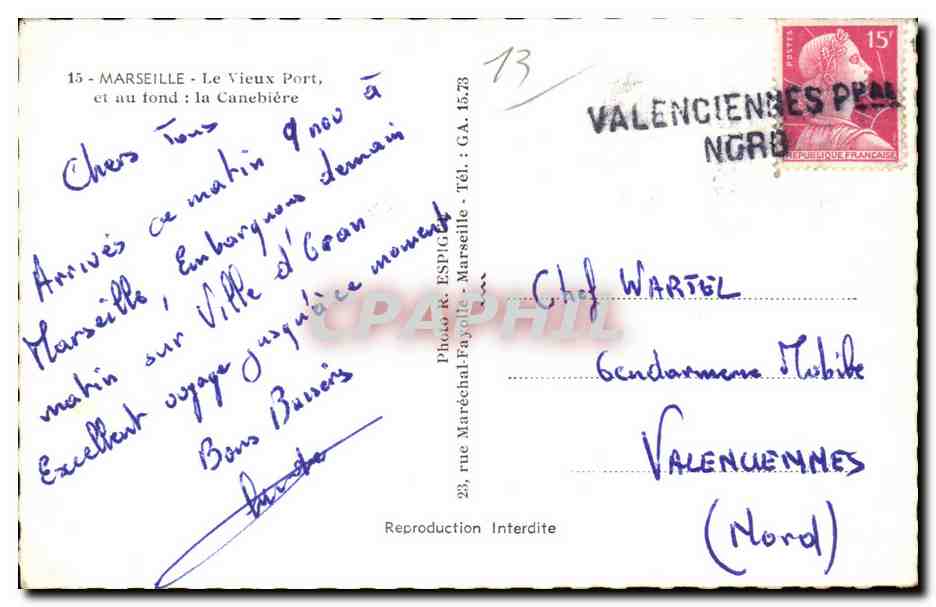 15 - MARSEILLE - Le Vieux Port,
et au fond : la Canebière
Chers Tous
Arrivés ce matin 9 nov à
Marseille, Embarquons demain
matin sur Ville d'Oran
Excellent voyage jusqu'à ce moment
Bons Baisers
Photo R. ESPIGUE
23, rue Maréchal-Fayolle - Marseille - Tél. : GA. 15.73
Reproduction Interdite
13
VALENCIENNES PPAL
NORD
POSTES
15F
REPUBLIQUE FRANCAISE
Chef WARTEL
Gendarmerie Mobile
VALENCIENNES
(Nord)
CPAPHIL